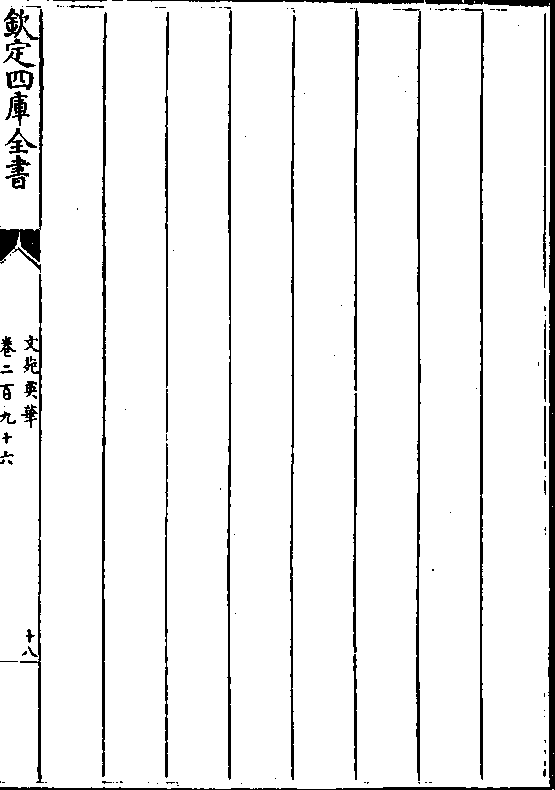 欽定四庫全書
文苑英華
卷二百九十六
十八